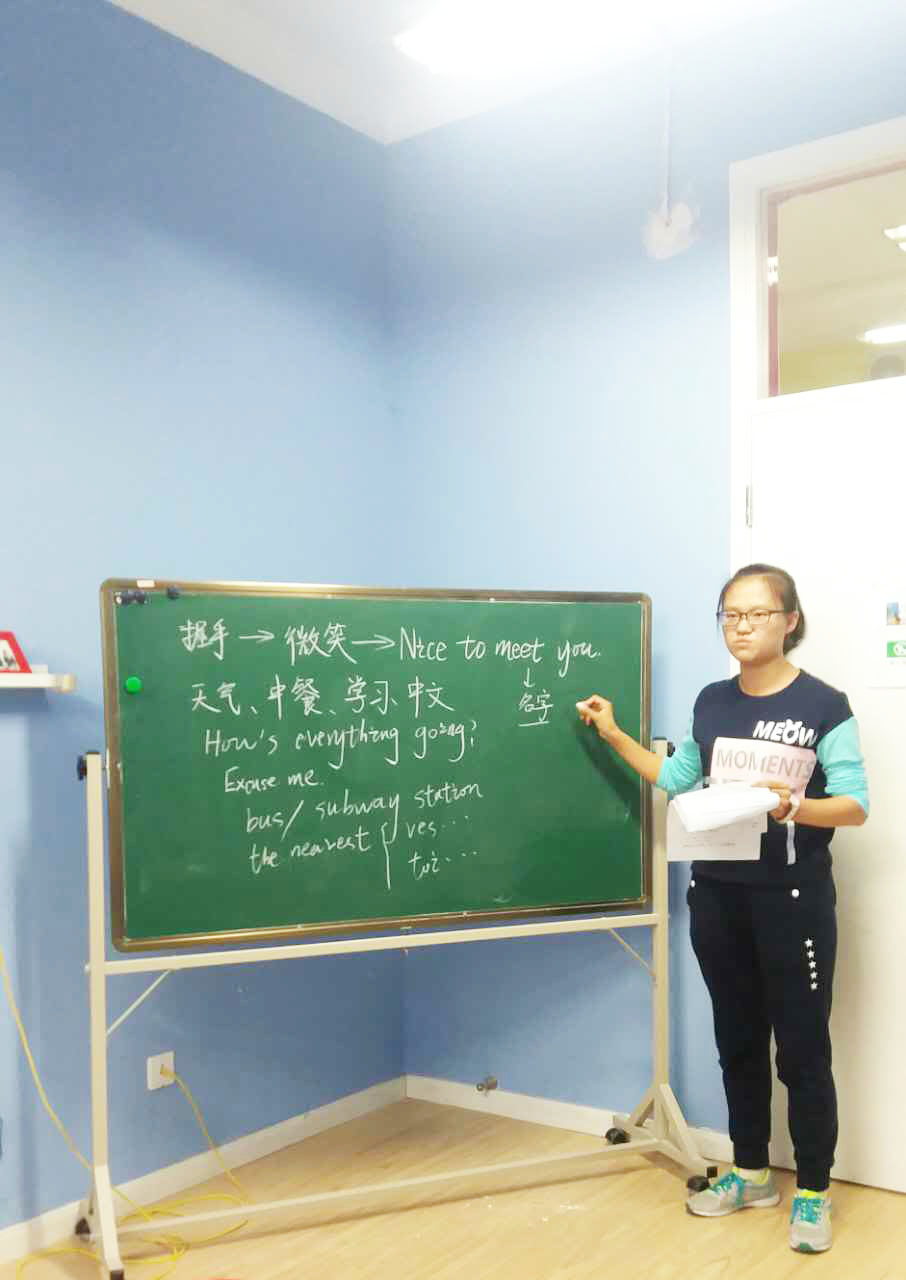 握手→微笑→Nice to meet you.
↓
名字
天气、中餐、学习、中文
How's everything going?
Excuse me.
bus/ subway station
the nearest { res...
toi...
MEOW
MOMENTS